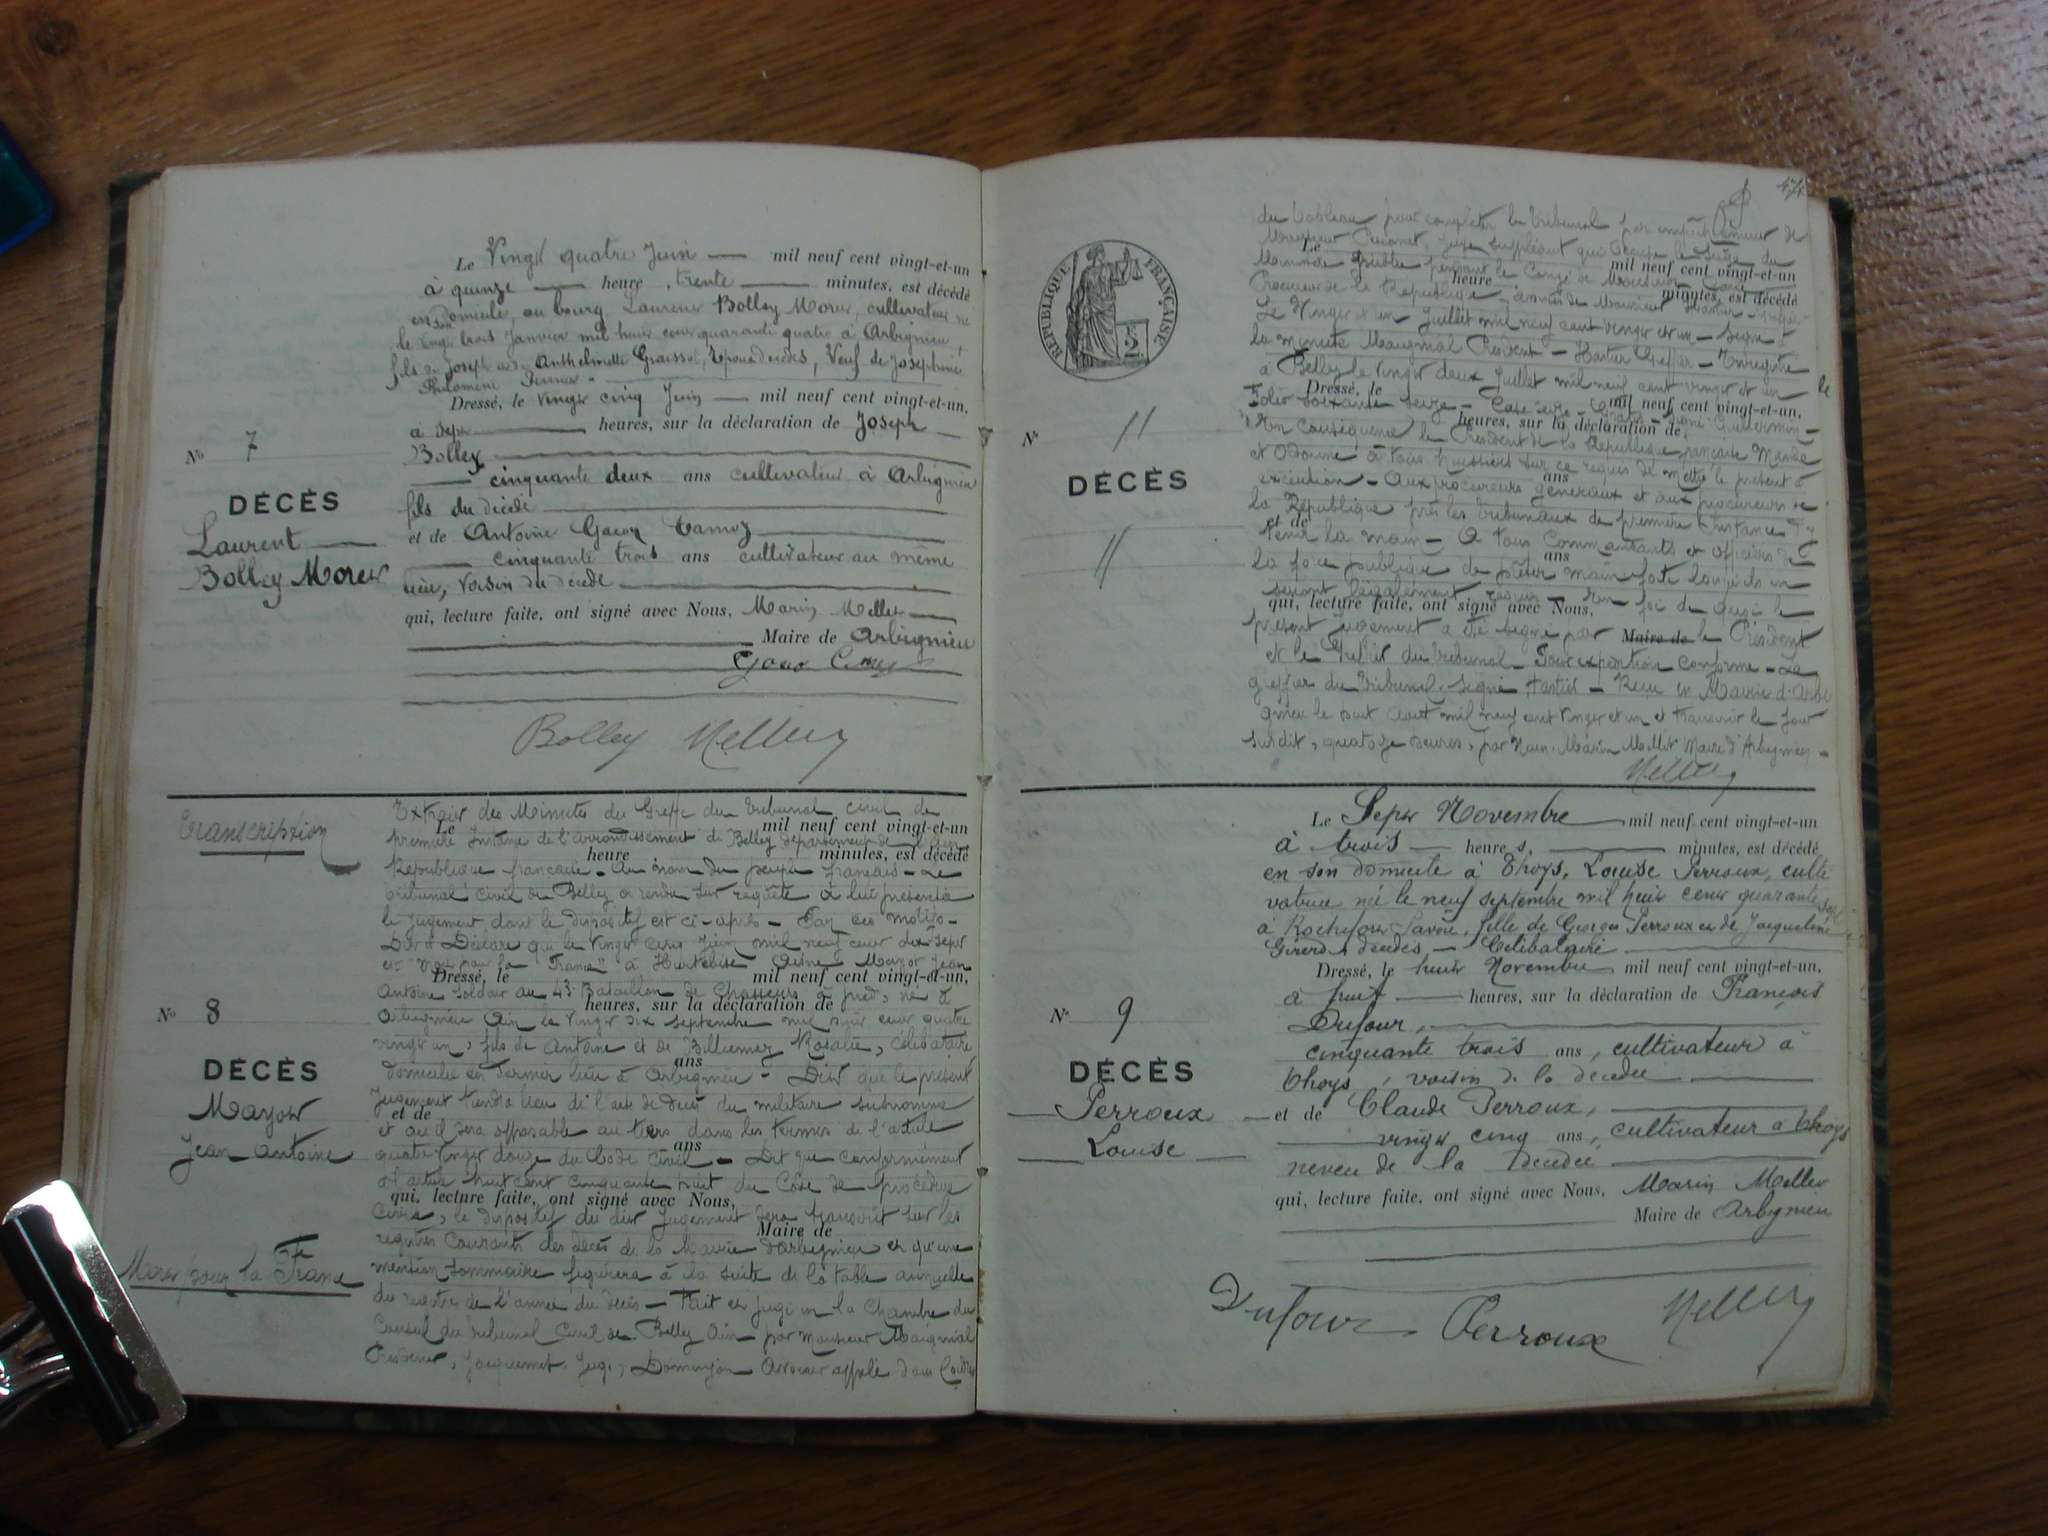 Le Vingt quatre Juin — mil neuf cent vingt-et-un
à quinze — heure, trente — minutes, est décédé
en son domicile, au bourg Laurent Bolley Moret, cultivateur né
le vingt trois Janvier mil huit cent quarante quatre à Arbignieu,
fils de Joseph et de Anthelmette Graissot, époux décédés, Veuf de Josephine
Philomène
Dressé, le vingt cinq Juin — mil neuf cent vingt-et-un,
à sept heures, sur la déclaration de Joseph
Bolley
cinquante deux ans cultivateur à Arbignieu
fils du décédé
et de Antoine Gacon Camoz
cinquante trois ans cultivateur au même
lieu, voisin du décédé
qui, lecture faite, ont signé avec Nous, Marin Mellet
Maire de Arbignieu
Bolley Mellet
No 7
DÉCÈS
Laurent
Bolley Moret
Transcription
Extrait des Minutes du Greffe du Tribunal civil de
Le mil neuf cent vingt-et-un
première Instance de l'arrondissement de Belley département de l'Ain
heure minutes, est décédé
République française - Au nom du peuple français - Le
Tribunal Civil de Belley a rendu sur requête à lui présentée
le jugement dont le dispositif est ci-après - Par ces motifs -
Dit et Déclare que le vingt cinq Juin mil neuf cent dix sept
est "mort pour la France" à Hurtebise Aisne Mayot Jean
Dressé, le mil neuf cent vingt-et-un,
Antoine soldat au 43e Bataillon de Chasseurs à pied, né à
heures, sur la déclaration de
Arbignieu Ain le vingt six septembre mil huit cent quatre
vingt un, fils de Antoine et de Billiemaz Rosalie, célibataire
ans
domicilié en dernier lieu à Arbignieu - Dit que le présent
Jugement tiendra lieu de l'acte de décès du militaire susnommé
et de
et qu'il sera opposable au tiers dans les termes de l'article
ans
quatre vingt douze du Code Civil - Dit que conformément
à l'article huit cent cinquante huit du Code de procédure
qui, lecture faite, ont signé avec Nous,
Civile, le dispositif du dit Jugement sera transcrit sur les
Maire de
registres courants des décès de la Mairie d'Arbignieu et qu'une
mention sommaire figurera à la suite de la table annuelle
du registre de l'année du décès - Fait et jugé en la Chambre du
Conseil du Tribunal Civil de Belley Ain - par Monsieur Maugnial
Président, Jacquemet Juge, Dominjon Avocat appelé dans l'ordre
No 8
DÉCÈS
Mayot
Jean Antoine
Mort pour la France
474
du tableau pour compléter le Tribunal par empêchement de
Monsieur Juge suppléant qui occupe le siège du
Le mil neuf cent vingt-et-un
Ministère Public pendant le Congé de Monsieur
heure minutes, est décédé
Procureur de la République - assistés de Monsieur Hastier greffier
Le Vingt et un Juillet mil neuf cent vingt et un - signé à
la minute Maugnial Président - Hastier Greffier - Enregistré
à Belley le vingt deux Juillet mil neuf cent vingt et un
Dressé, le mil neuf cent vingt-et-un,
Folio soixante seize - Case seize - signé Guillermin -
heures, sur la déclaration de
En conséquence le Président de la République française Mande
et Ordonne à tous huissiers sur ce requis de mettre le présent à
ans
exécution - Aux procureurs généraux et aux procureurs de
la République près les Tribunaux de première Instance d'y
et de
tenir la main - A tous Commandants et officiers de
ans
la force publique de prêter main forte lorsqu'ils en
seront légalement requis - En foi de quoi le
qui, lecture faite, ont signé avec Nous,
présent jugement a été signé par Maire de le Président
et le Greffier du Tribunal - Pour expédition conforme - Le
greffier du Tribunal, signé Hastier - Reçu en Mairie d'Arbi
gnieu le huit Août mil neuf cent vingt et un et transcrit le jour
susdit, quatorze heures, par Nous Marin Mellet Maire d'Arbignieu -
Mellet
RÉPUBLIQUE FRANÇAISE
No //
DÉCÈS
//
Le Sept Novembre mil neuf cent vingt-et-un
à trois — heures, minutes, est décédé
en son domicile à Thoys, Louise Perroux, culti
vatrice née le neuf septembre mil huit cent quarante sept
à Rochefort Savoie, fille de Georges Perroux et de Jacqueline
Girerd décédés, - Célibataire
Dressé, le huit Novembre mil neuf cent vingt-et-un,
à huit heures, sur la déclaration de François
Dufour,
cinquante trois ans, cultivateur à
Thoys, voisin de la décédée
et de Claude Perroux,
vingt cinq ans, cultivateur à Thoys
neveu de la décédée
qui, lecture faite, ont signé avec Nous, Marin Mellet
Maire de Arbignieu
Dufour Perroux Mellet
No 9
DÉCÈS
Perroux
Louise